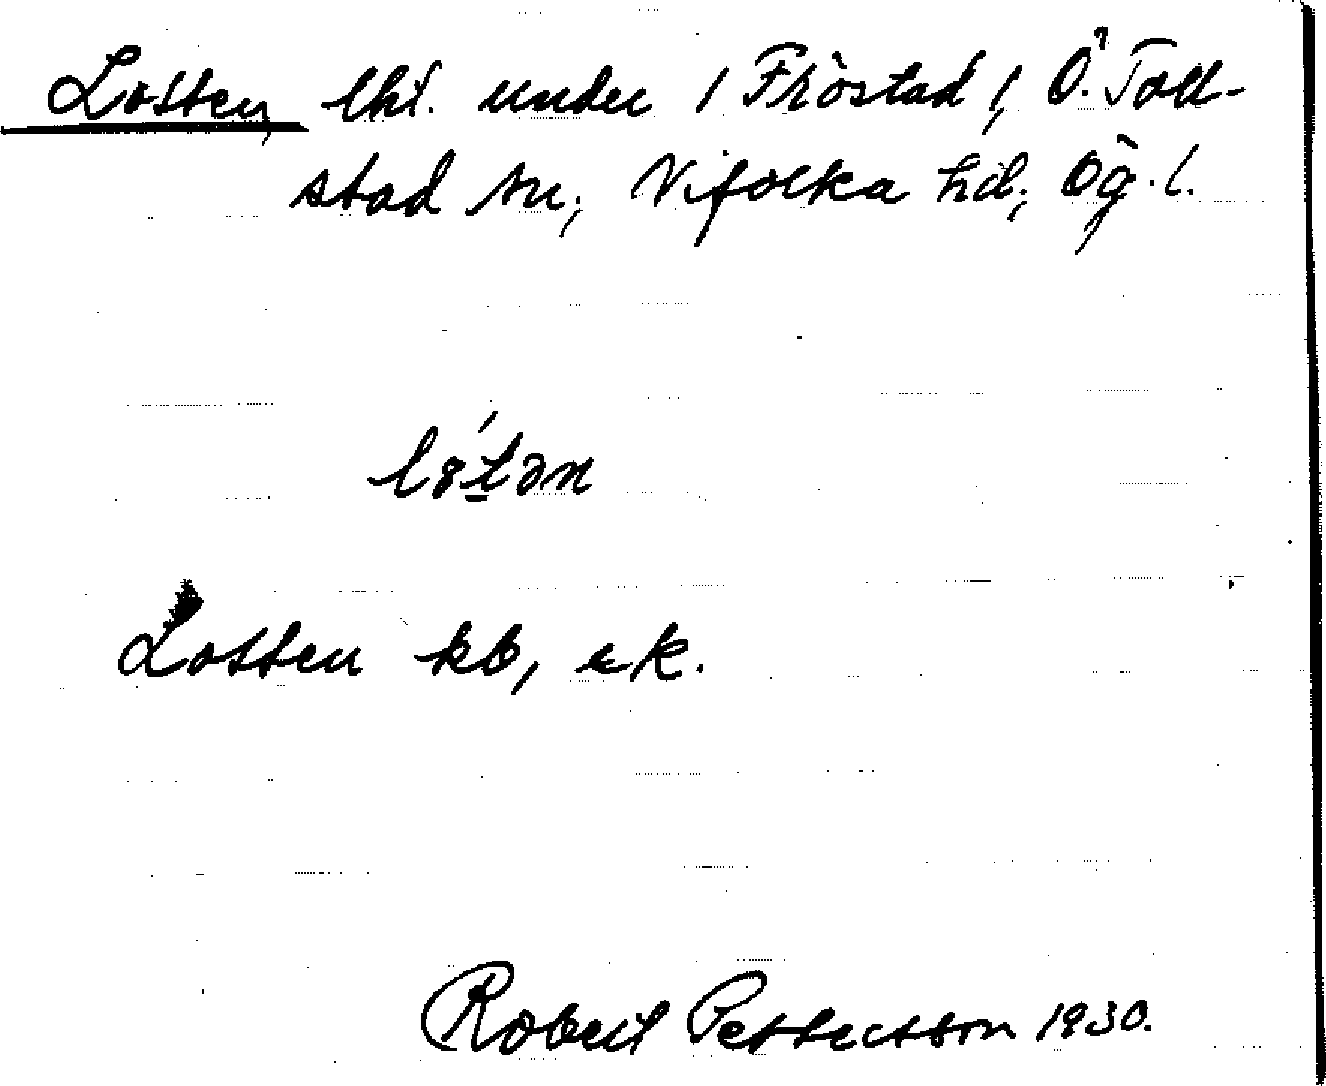 Lotten, lht. under 1 Fröstad 1, Ö. Toll-
stad sn, Vifolka hd, Ög. l.
lö́tən
Lotten kb, ek.
Robert Pettersson 1930.